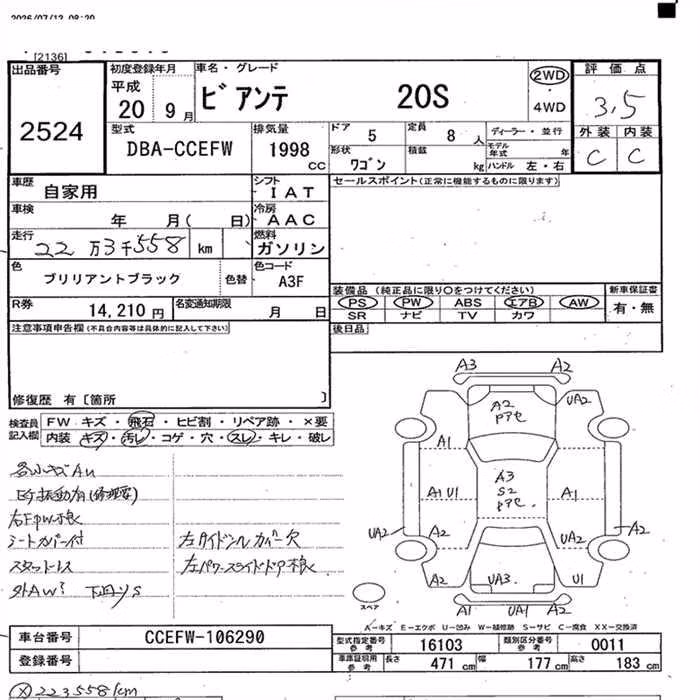 2026/07/13 08:20
[2136]
出品番号
2524
初度登録年月
平成
20 9月
車名・グレード
ビアンテ 20S
2WD
・
4WD
評価点
3.5
外装 内装
C C
型式
DBA-CCEFW
排気量
1998
cc
ドア
5
定員
8 人
ディーラー・並行
形状
ワゴン
積載
kg
モデル年式 年
ハンドル 左・右
車歴
自家用
シフト
IAT
セールスポイント(正常に機能するものに限ります)
車検
年 月( 日)
冷房
AAC
走行
22万3千558 km
燃料
ガソリン
色
ブリリアントブラック
色替
色コード
A3F
装備品 (純正品に限り○をつけてください)
新車保証書
PS PW ABS エアB AW
有・無
SR ナビ TV カワ
R券
14,210円
名変通知期限
月 日
後日品
注意事項申告欄(不具合内容等は具体的に記入して下さい)
修復歴 有〔箇所 〕
検査員記入欄
FW キズ・飛石・ヒビ割・リペア跡・×要
内装・キズ・汚レ・コゲ・穴・スレ・キレ・破レ
各小キズAU
右FPW不良
シートカバー付
スタッドレス
左サイドシルカバー欠
左パワースライドドア不良
A3 A2
A2
Pアセ
UA2
A1
A3
S2
Pアセ
A1 U1
A1
UA2
A2
UA2
A2
A2
UA3
U1
A1 UA1 A2
スペア
A-キズ E-エクボ U-凹み W-補修跡 S-サビ C-腐食 XX-交換済
車台番号
CCEFW-106290
登録番号
型式指定番号
参考
16103
類別区分番号
参考
0011
車庫証明用
参考
長さ
471 cm
幅
177 cm
高さ
183 cm
223558km